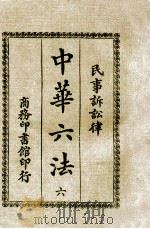 民事訴訟律
中華六法
六
商務印書館印行
mtoou.info